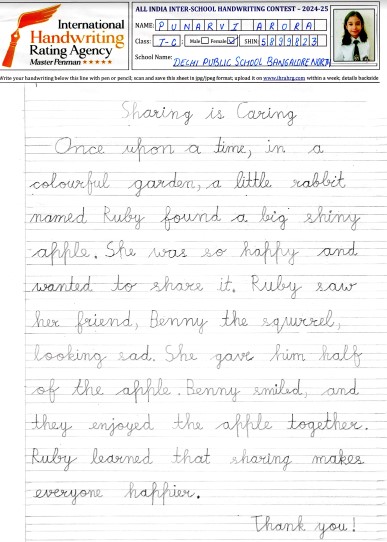 International
Handwriting
Rating Agency
Master Penman ★★★★★
ALL INDIA INTER-SCHOOL HANDWRITING CONTEST – 2024-25
NAME: PUNARVI ARORA
Class: I-G Male Female SHIN 5899823
School Name: DELHI PUBLIC SCHOOL BANGALORE NORTH
Write your handwriting below this line with pen or pencil; scan and save this sheet in jpg/jpeg format; upload it on www.ihrahrg.com within a week, details backside
Sharing is Caring
Once upon a time, in a
colourful garden, a little rabbit
named Ruby found a big shiny
apple. She was so happy and
wanted to share it. Ruby saw
her friend, Benny the squirrel,
looking sad. She gave him half
of the apple. Benny smiled, and
they enjoyed the apple together.
Ruby learned that sharing makes
everyone happier.
Thank you!